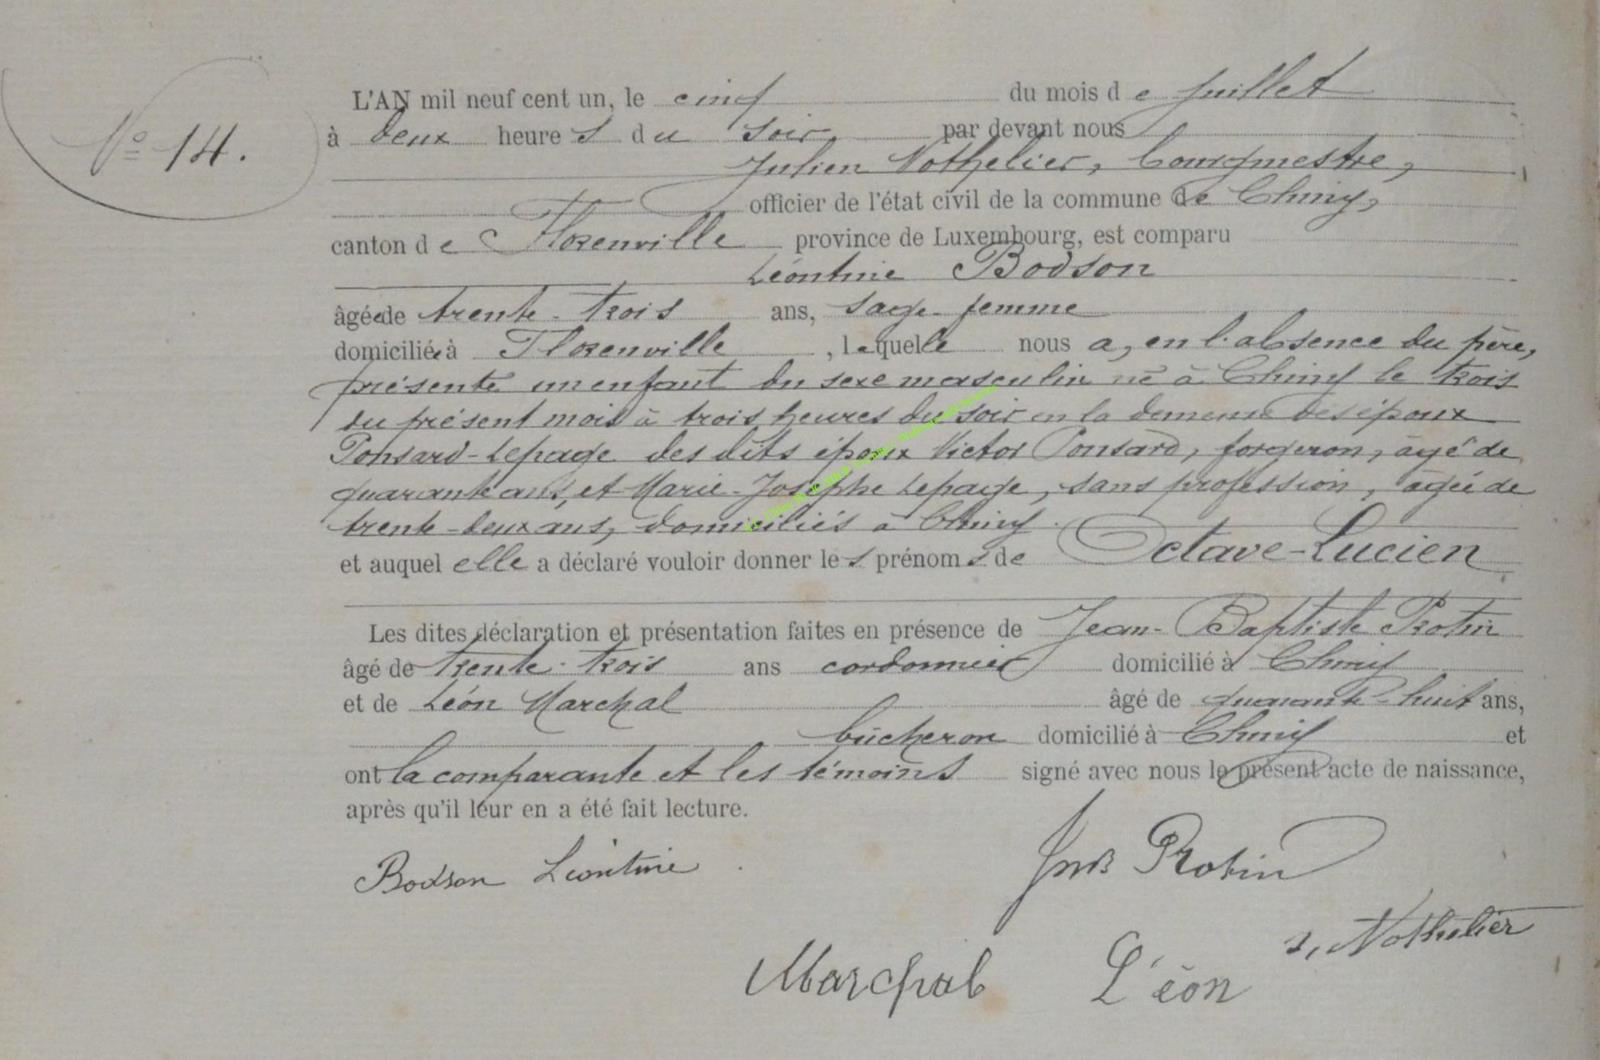 L'AN mil neuf cent un, le cinq du mois de Juillet
Nº 14.
à deux heures du soir, par devant nous
Julien Nothelier, bourgmestre,
officier de l'état civil de la commune de Chiny,
canton de Florenville province de Luxembourg, est comparu
Léontine Bodson
âgée de trente-trois ans, sage-femme
domiciliée à Florenville, laquelle nous a, en l'absence du père,
présenté un enfant du sexe masculin né à Chiny le trois
du présent mois à trois heures du soir en la demeure des époux
Ponsard-Lepage des dits époux Victor Ponsard, forgeron, âgé de
quarante ans, et Marie-Josèphe Lepage, sans profession, âgée de
trente-deux ans, domiciliés à Chiny.
et auquel elle a déclaré vouloir donner les prénoms de Octave-Lucien
Les dites déclaration et présentation faites en présence de Jean-Baptiste Protin
âgé de trente-trois ans cordonnier domicilié à Chiny
et de Léon Marchal âgé de quarante-huit ans,
bûcheron domicilié à Chiny et
ont la comparante et les témoins signé avec nous le présent acte de naissance,
après qu'il leur en a été fait lecture.
Bodson Léontine
JnB Protin
J. Nothelier
Marchal Léon